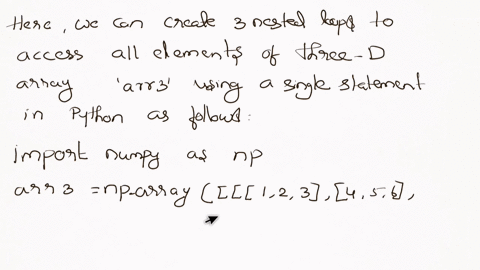 Here, we can create 3 nested loops to
access all elements of three-D
array 'arr3' using a single statement
in Python as follows:
import numpy as np
arr3 = np.array ([[[1,2,3],[4,5,6],